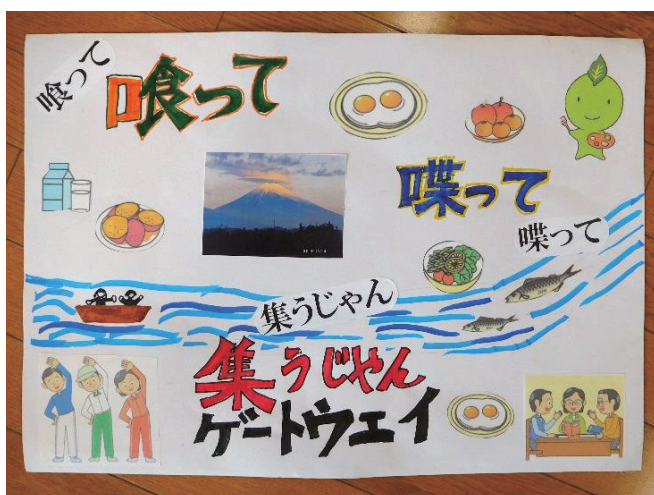 喰って
喰って
喋って
喋って
集うじゃん
集うじゃん
ゲートウェイ